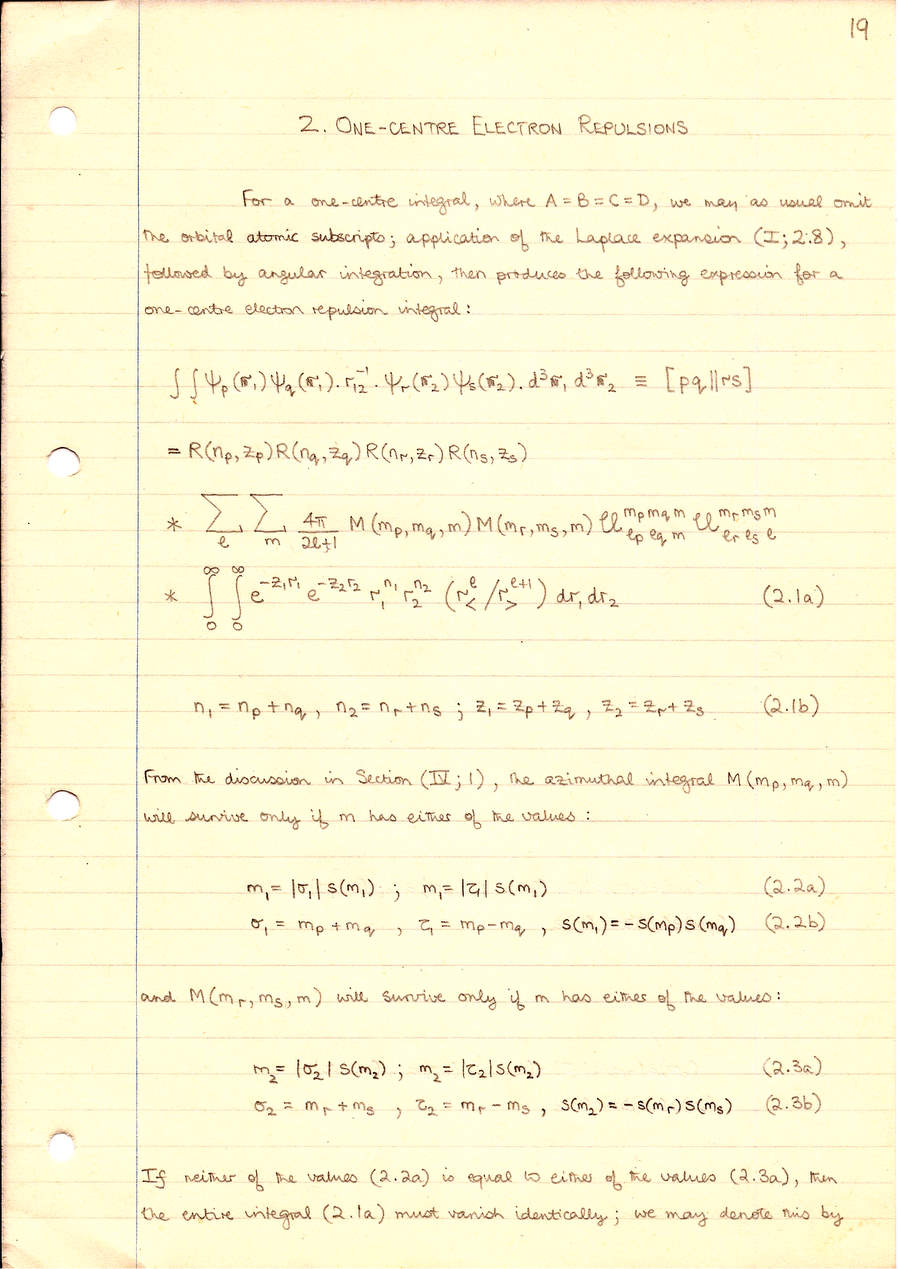 19
2. ONE-CENTRE ELECTRON REPULSIONS
For a one-centre integral, where A = B = C = D, we may as usual omit
the orbital atomic subscripts; application of the Laplace expansion (I; 2.8),
followed by angular integration, then produces the following expression for a
one-centre electron repulsion integral:
∫∫ ψp(r₁) ψq(r₁). r₁₂⁻¹. ψr(r₂) ψs(r₂). d³r₁ d³r₂ ≡ [pq||rs]
= R(np, zp) R(nq, zq) R(nr, zr) R(ns, zs)
* Σ_l Σ_m 4π/(2l+1) M(mp, mq, m) M(mr, ms, m) U^{mp mq m}_{lp lq m} U^{mr ms m}_{lr ls l}
* ∫₀^∞ ∫₀^∞ e^{-z₁r₁} e^{-z₂r₂} r₁^{n₁} r₂^{n₂} (r_<^l / r_>^{l+1}) dr₁ dr₂ (2.1a)
n₁ = np + nq , n₂ = nr + ns ; z₁ = zp + zq , z₂ = zr + zs (2.1b)
From the discussion in Section (IV; 1), the azimuthal integral M(mp, mq, m)
will survive only if m has either of the values :
m₁ = |σ₁| s(m₁) ; m₁ = |τ₁| s(m₁) (2.2a)
σ₁ = mp + mq , τ₁ = mp − mq , s(m₁) = − s(mp) s(mq) (2.2b)
and M(mr, ms, m) will survive only if m has either of the values :
m₂ = |σ₂| s(m₂) ; m₂ = |τ₂| s(m₂) (2.3a)
σ₂ = mr + ms , τ₂ = mr − ms , s(m₂) = − s(mr) s(ms) (2.3b)
If neither of the values (2.2a) is equal to either of the values (2.3a), then
the entire integral (2.1a) must vanish identically; we may denote this by